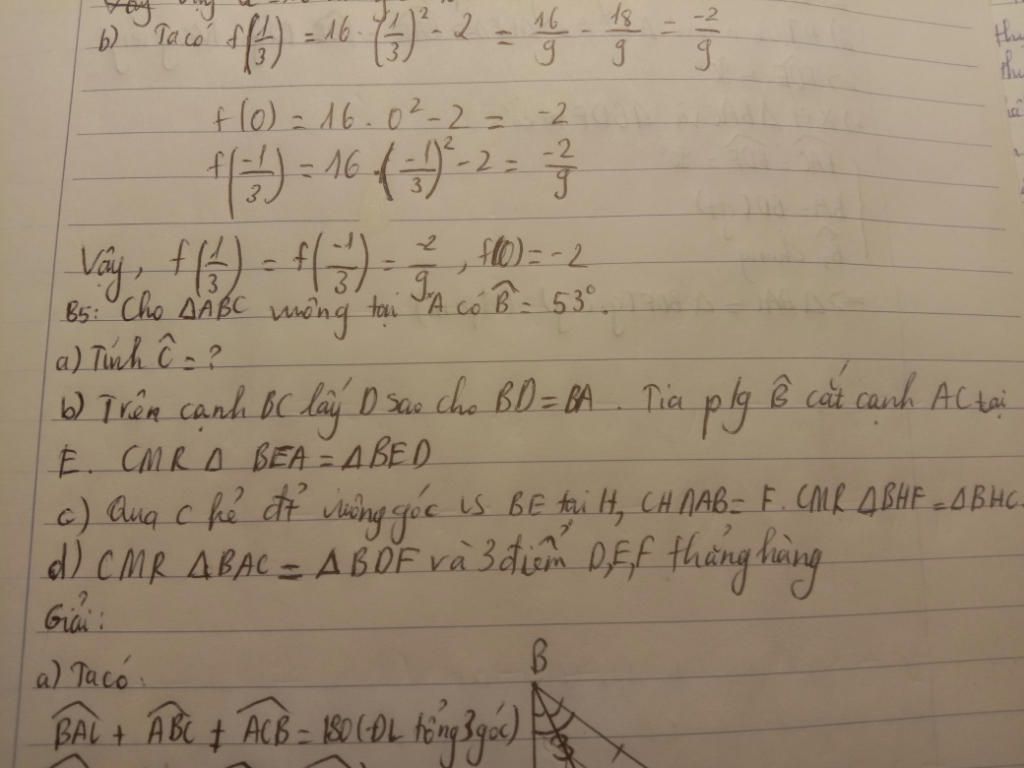 b) Ta có f(1/3) = 16 . (1/3)² - 2 = 16/9 - 18/9 = -2/9
f(0) = 16 . 0² - 2 = -2
f(-1/3) = 16 . (-1/3)² - 2 = -2/9
Vậy, f(1/3) = f(-1/3) = -2/9 , f(0) = -2
B5: Cho ΔABC vuông tại A có B̂ = 53°.
a) Tính Ĉ = ?
b) Trên cạnh BC lấy D sao cho BD = BA . Tia p/g B̂ cắt cạnh AC tại
E. CMR Δ BEA = ΔBED
c) Qua C kẻ đt vuông góc vs BE tại H, CH∩AB = F. CMR ΔBHF = ΔBHC.
d) CMR ΔBAC = ΔBDF và 3 điểm D,E,F thẳng hàng
Giải:
B
a) Ta có:
BAC + ABC + ACB = 180 (ĐL tổng 3 góc)